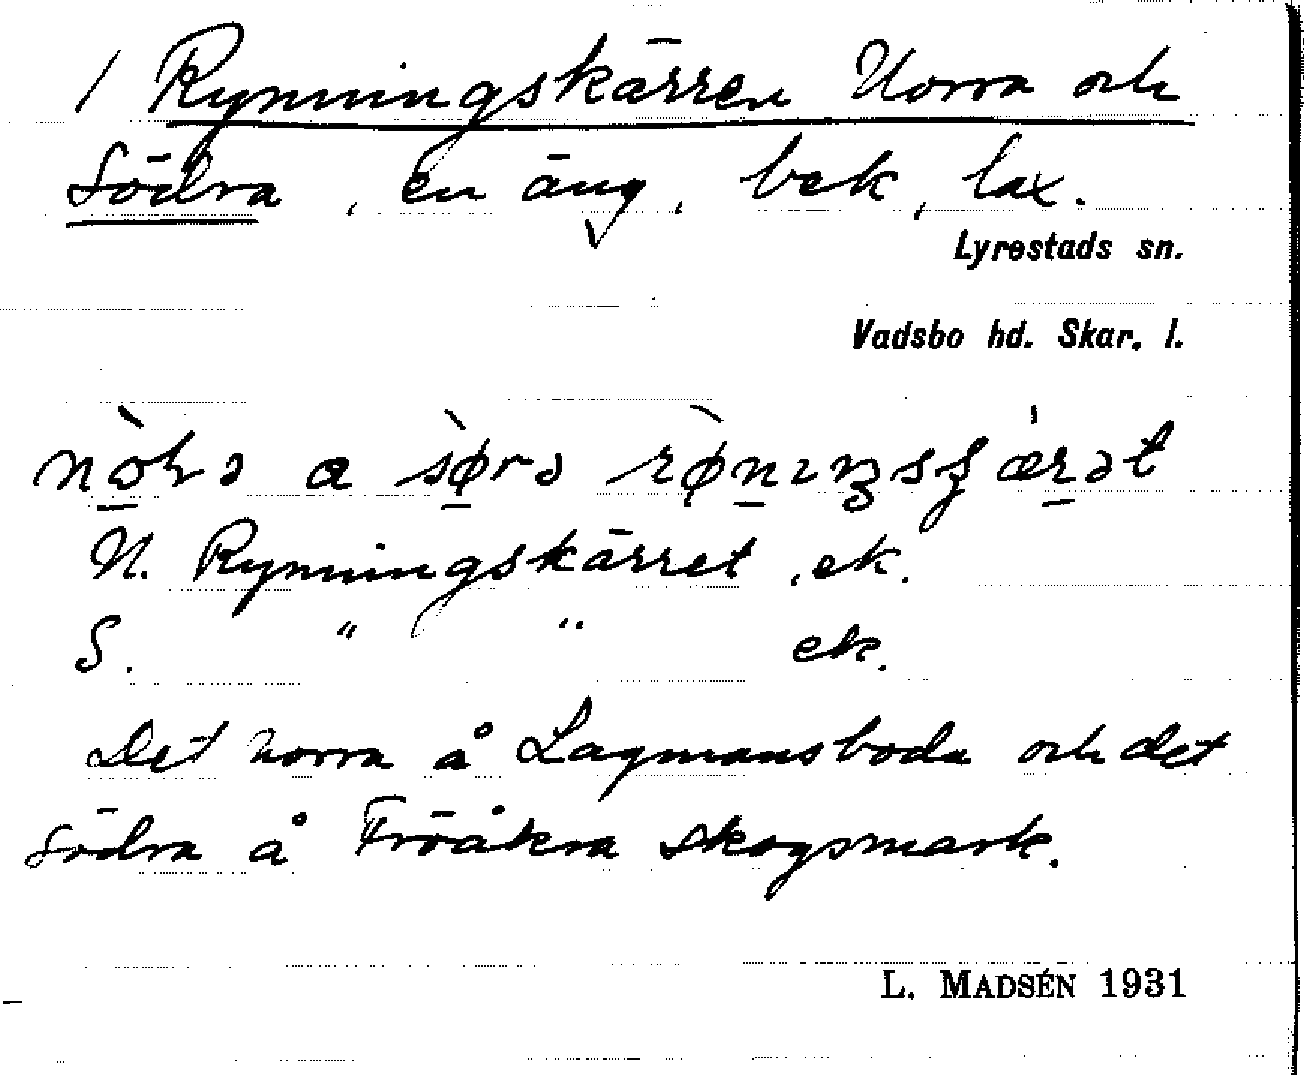 / Rynningskärren Norra och
Södra, en äng, bek, lax.
Lyrestads sn.
Vadsbo hd. Skar. l.
N. Rynningskärret, ek.
S. " " ek.
Det norra å Lagmansboda och det
södra å Fröåkra skogsmark.
L. MADSÉN 1931